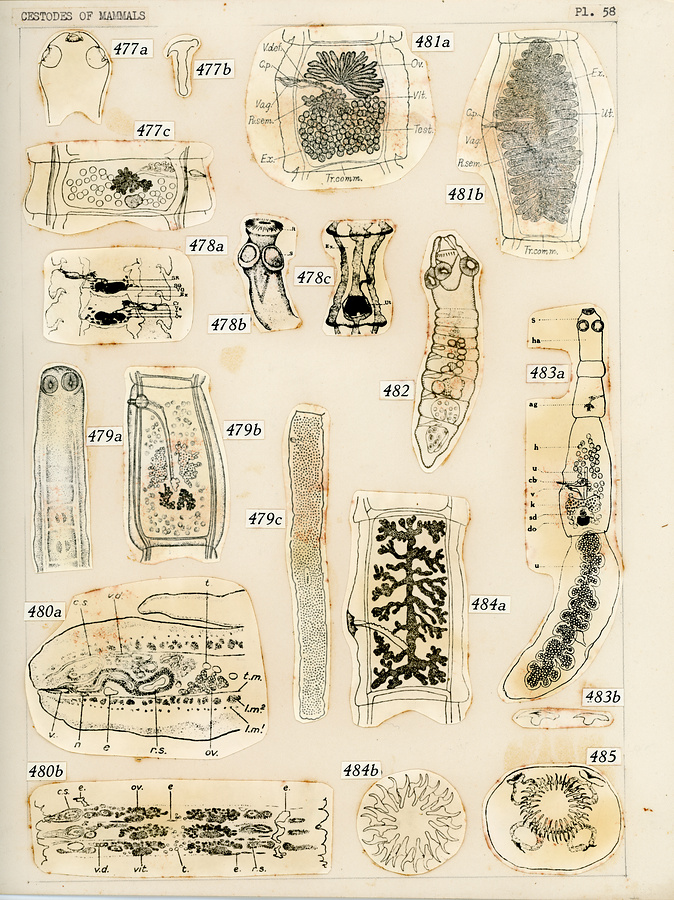 CESTODES OF MAMMALS
Pl. 58
477a
477b
477c
481a
V.def.
C.p.
Vag.
R.sem.
Ex.
Ov.
Vit.
Test.
Tr.comm.
481b
C.p.
Vag.
R.sem.
Ex.
Ut.
Tr.comm.
478a
478b
478c
Ex.
Ut.
482
483a
s
ha
ag
h
u
cb
v
k
sd
do
u
483b
479a
479b
479c
484a
480a
c.s.
v.d.
t.
t.m.
l.m²
l.m¹
v.
n
e
r.s.
ov.
480b
c.s.
e.
ov.
e
e.
v.d.
vit.
t.
e.
r.s.
484b
485